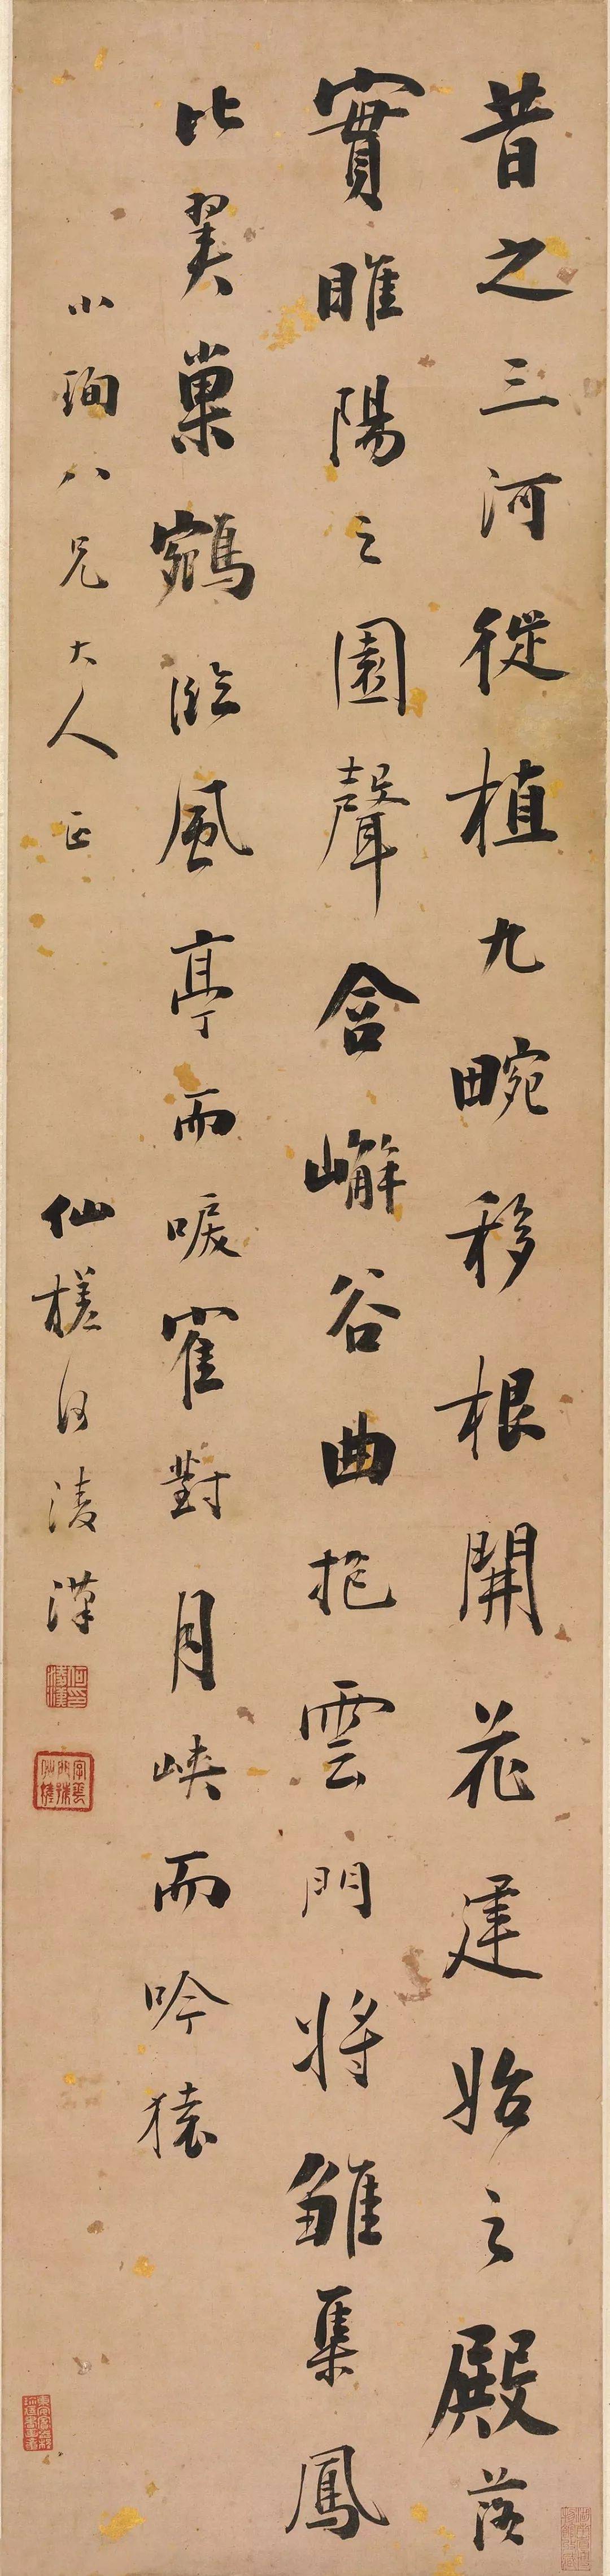 昔之三河從植九畹移根開花建始之殿落
實睢陽之園聲含嶰谷曲抱雲門將雛集鳳
比翼巢鵷臨風亭而唳寉對月峽而吟猿
小珣八兄大人正
仙槎何淩漢
何淩漢印